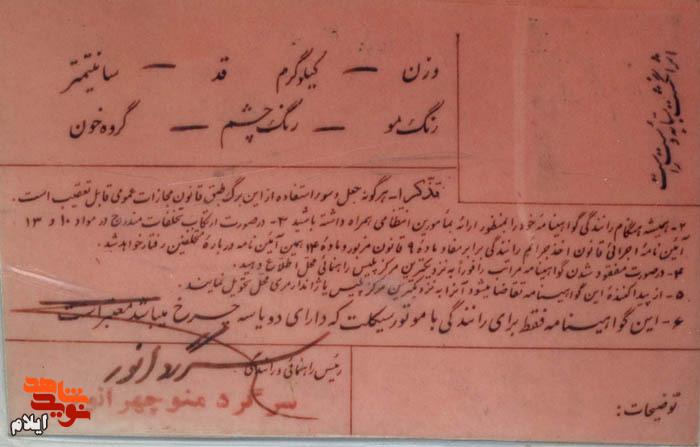 اثر انگشت شست دست راست
وزن — کیلوگرم قد — سانتیمتر
رنگ مو — رنگ چشم — گروه خون
تذکر ۱ـ هر گونه جعل و سوء استفاده از این برگ طبق قانون مجازات عمومی قابل تعقیب است .
۲ـ همیشه هنگام رانندگی گواهینامه خود را بمنظور ارائه بمأمورین انتظامی همراه داشته باشید ۳ـ در صورت ارتکاب تخلفات مندرج در مواد ۱۰ و ۱۳
آئین نامه اجرائی قانون اخذ جرائم رانندگی برابر مفاد ماده ۹ قانون مزبور و ماده ۱۴ همین آئین نامه درباره متخلفین رفتار خواهد شد .
۴ـ در صورت مفقود شدن گواهینامه مراتب را فوراً به نزدیکترین مرکز پلیس راهنمائی محل اطلاع دهید .
۵ـ از پیدا کننده این گواهینامه تقاضا میشود آنرا به نزدیکترین مرکز پلیس یا ژاندارمری محل تحویل نمایند .
۶ـ این گواهینامه فقط برای رانندگی با موتور سیکلت که دارای دو یا سه چرخ میباشد معتبر است
رئیس راهنمائی و رانندگی
سرگرد انور
سرگرد منوچهر
توضیحات :
شاهد
نوید
ایلام